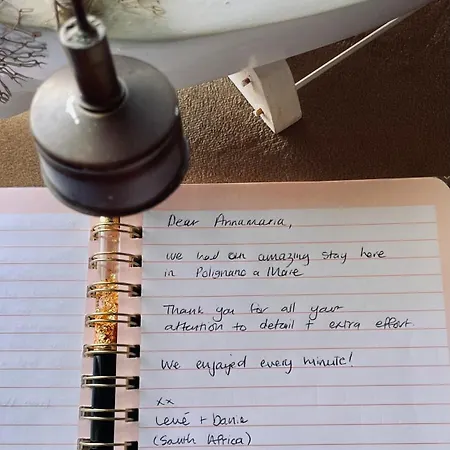 Dear Annamaria,
We had an amazing stay here
in Polignano a Mare
Thank you for all your
attention to detail + extra effort.
We enjoyed every minute!
xx
Lené + Danie
(South Africa)